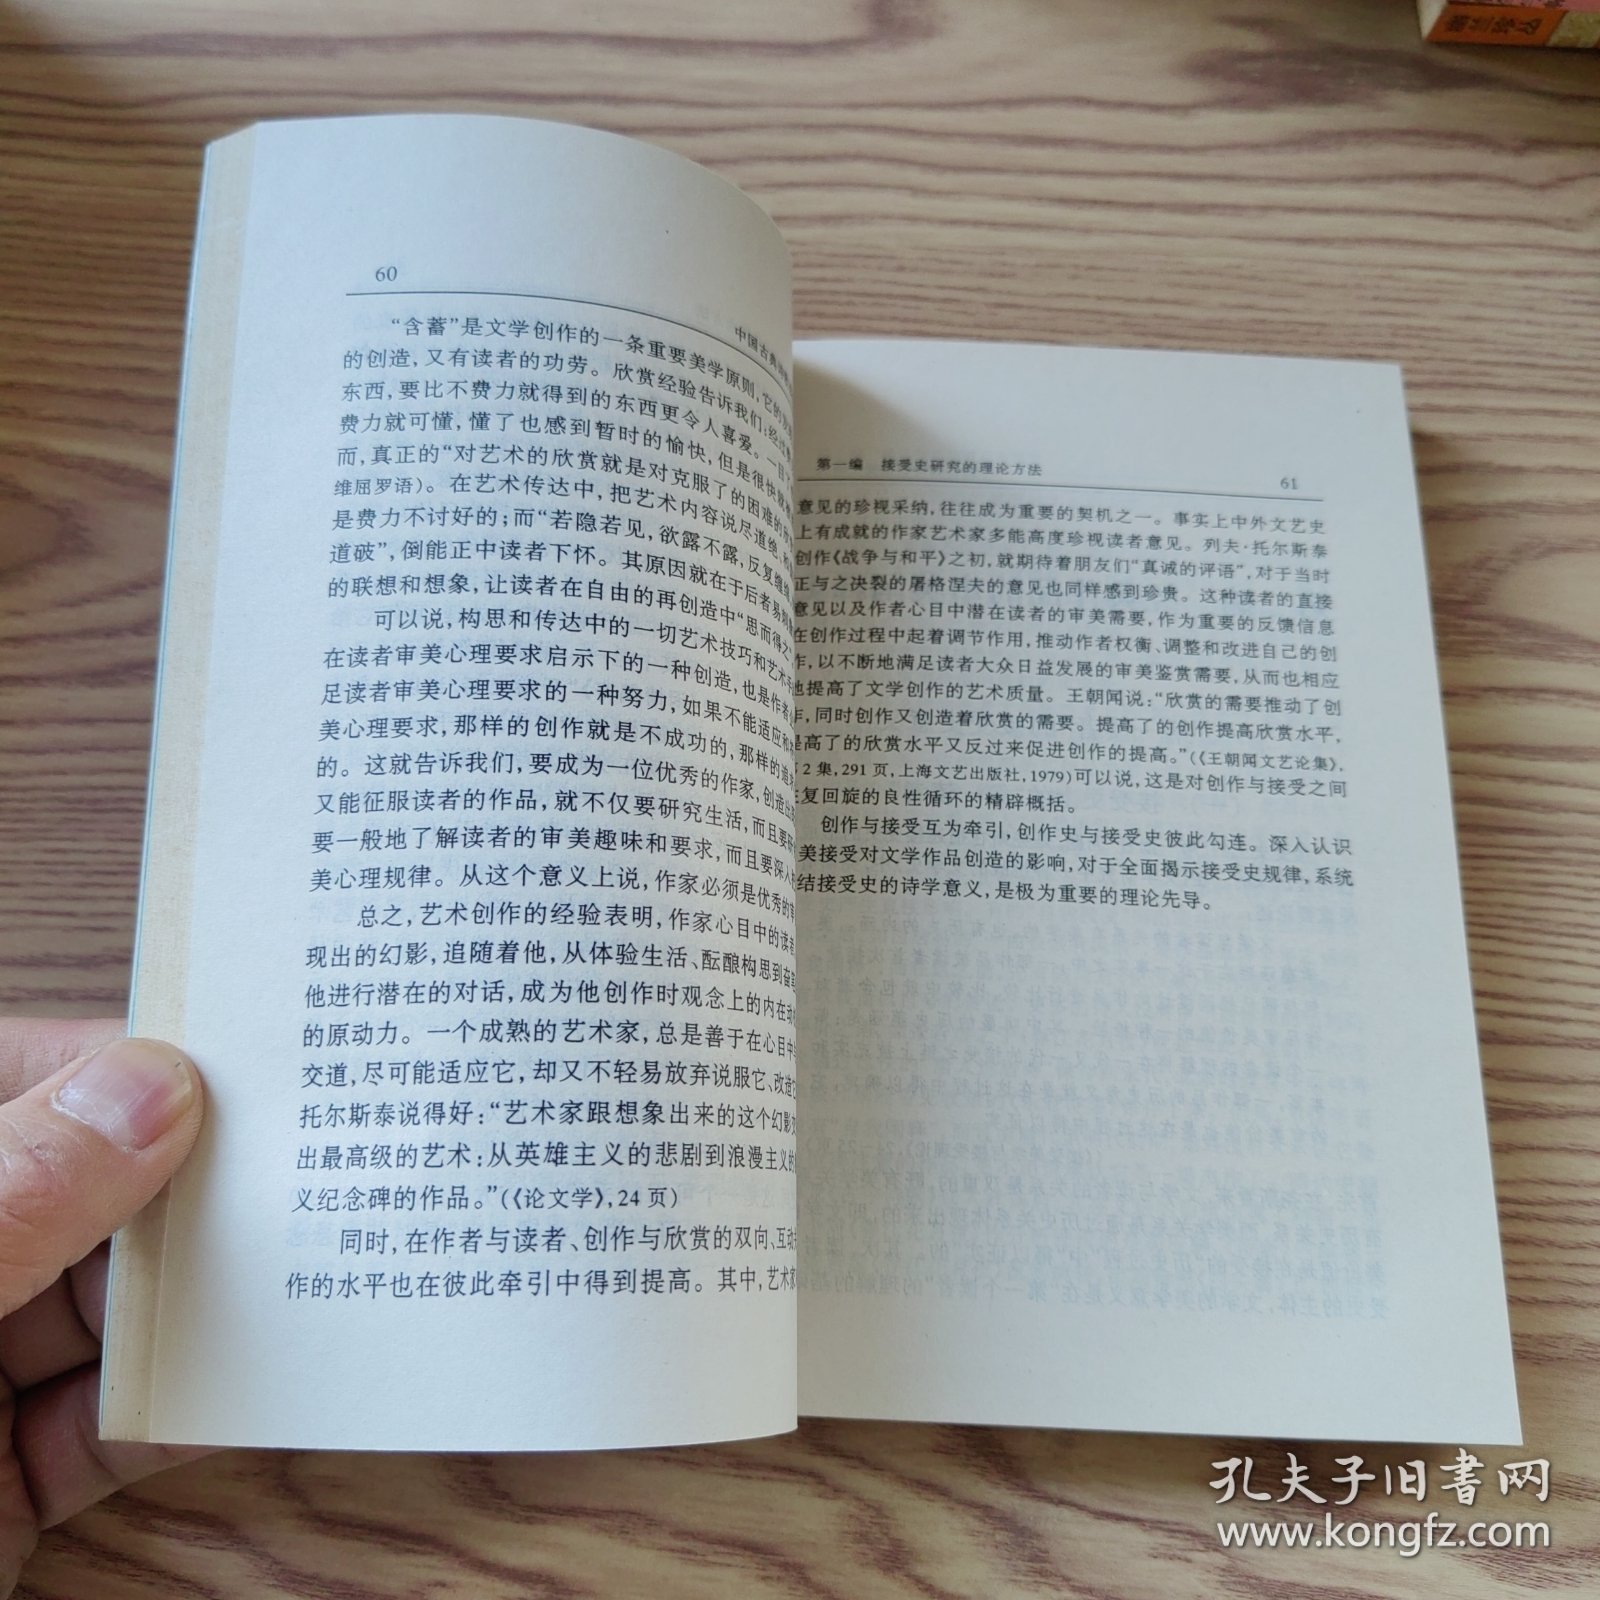 60
中国古典
“含蓄”是文学创作的一条重要美学原则，它的
的创造，又有读者的功劳。欣赏经验告诉我们：经过
东西，要比不费力就得到的东西更令人喜爱。一目了
费力就可懂，懂了也感到暂时的愉快，但是很快就
而，真正的“对艺术的欣赏就是对克服了的困难的
维屈罗语）。在艺术传达中，把艺术内容说尽道绝，
是费力不讨好的；而“若隐若见，欲露不露，反复缠绵，
道破”，倒能正中读者下怀。其原因就在于后者易
的联想和想象，让读者在自由的再创造中“思而得之”
可以说，构思和传达中的一切艺术技巧和艺术手
在读者审美心理要求启示下的一种创造，也是作者
足读者审美心理要求的一种努力，如果不能适应和
美心理要求，那样的创作就是不成功的，那样的
的。这就告诉我们，要成为一位优秀的作家，创造出
又能征服读者的作品，就不仅要研究生活，而且要研
要一般地了解读者的审美趣味和要求，而且要深入
美心理规律。从这个意义上说，作家必须是优秀的审
总之，艺术创作的经验表明，作家心目中的读者
现出的幻影，追随着他，从体验生活、酝酿构思到奋笔
他进行潜在的对话，成为他创作时观念上的内在动
的原动力。一个成熟的艺术家，总是善于在心目中
交道，尽可能适应它，却又不轻易放弃说服它、改造它
托尔斯泰说得好：“艺术家跟想象出来的这个幻影交
出最高级的艺术：从英雄主义的悲剧到浪漫主义的
义纪念碑的作品。”（《论文学》，24 页）
同时，在作者与读者、创作与欣赏的双向、互动
作的水平也在彼此牵引中得到提高。其中，艺术家
第一编 接受史研究的理论方法
61
意见的珍视采纳，往往成为重要的契机之一。事实上中外文艺史
上有成就的作家艺术家多能高度珍视读者意见。列夫·托尔斯泰
创作《战争与和平》之初，就期待着朋友们“真诚的评语”，对于当时
正与之决裂的屠格涅夫的意见也同样感到珍贵。这种读者的直接
意见以及作者心目中潜在读者的审美需要，作为重要的反馈信息
在创作过程中起着调节作用，推动作者权衡、调整和改进自己的创
作，以不断地满足读者大众日益发展的审美鉴赏需要，从而也相应
地提高了文学创作的艺术质量。王朝闻说：“欣赏的需要推动了创
作，同时创作又创造着欣赏的需要。提高了的创作提高欣赏水平，
提高了的欣赏水平又反过来促进创作的提高。”（《王朝闻文艺论集》，
第 2 集，291 页，上海文艺出版社，1979）可以说，这是对创作与接受之间
复回旋的良性循环的精辟概括。
创作与接受互为牵引，创作史与接受史彼此勾连。深入认识
美接受对文学作品创造的影响，对于全面揭示接受史规律，系统
结接受史的诗学意义，是极为重要的理论先导。
孔夫子旧书网
www.kongfz.com